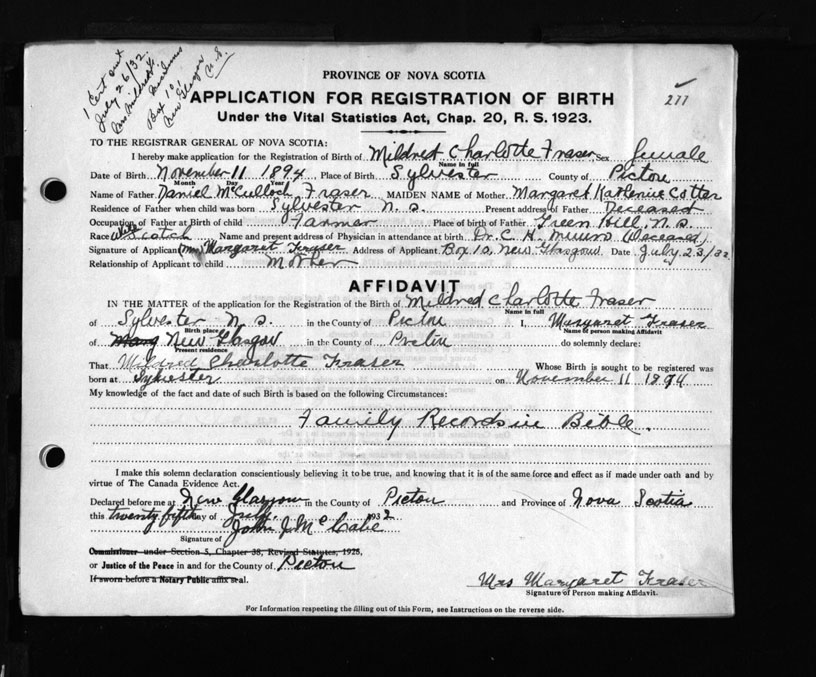 1 Cert out
July 26/32.
Mrs Mildred
Box 10,
New Glasgow
N. S.
277
PROVINCE OF NOVA SCOTIA
APPLICATION FOR REGISTRATION OF BIRTH
Under the Vital Statistics Act, Chap. 20, R. S. 1923.
TO THE REGISTRAR GENERAL OF NOVA SCOTIA:
I hereby make application for the Registration of Birth of Mildred Charlotte Fraser Sex female
Name in full
Date of Birth November 11 1894 Place of Birth Sylvester County of Pictou
Month Day Year
Name of Father Daniel McCulloch Fraser MAIDEN NAME of Mother Margaret Cotter
Residence of Father when child was born Sylvester N. S. Present address of Father Deceased
Occupation of Father at Birth of child Farmer Place of birth of Father Green Hill, N. S.
Race White Scotch Name and present address of Physician in attendance at birth Dr. C. H. Munro (Deceased)
Signature of Applicant (Mrs) Margaret Fraser Address of Applicant Box 10, New Glasgow Date July 23/32
Relationship of Applicant to child Mother
AFFIDAVIT
IN THE MATTER of the application for the Registration of the Birth of Mildred Charlotte Fraser
Name in full
of Sylvester N S. in the County of Pictou I, Margaret Fraser
Birth place Name of person making Affidavit
of New Glasgow in the County of Pictou do solemnly declare:
Present residence
That Mildred Charlotte Fraser Whose Birth is sought to be registered was
born at Sylvester on November 11 1894
My knowledge of the fact and date of such Birth is based on the following Circumstances:
Family Records in Bible.
I make this solemn declaration conscientiously believing it to be true, and knowing that it is of the same force and effect as if made under oath and by
virtue of The Canada Evidence Act.
Declared before me at New Glasgow in the County of Pictou and Province of Nova Scotia
this twenty fifth day of July 1932
Signature of John J. McCabe
Commissioner under Section 5, Chapter 38, Revised Statutes, 1923,
or Justice of the Peace in and for the County of Pictou
If sworn before a Notary Public affix seal.
Mrs Margaret Fraser
Signature of Person making Affidavit.
For Information respecting the filling out of this Form, see Instructions on the reverse side.